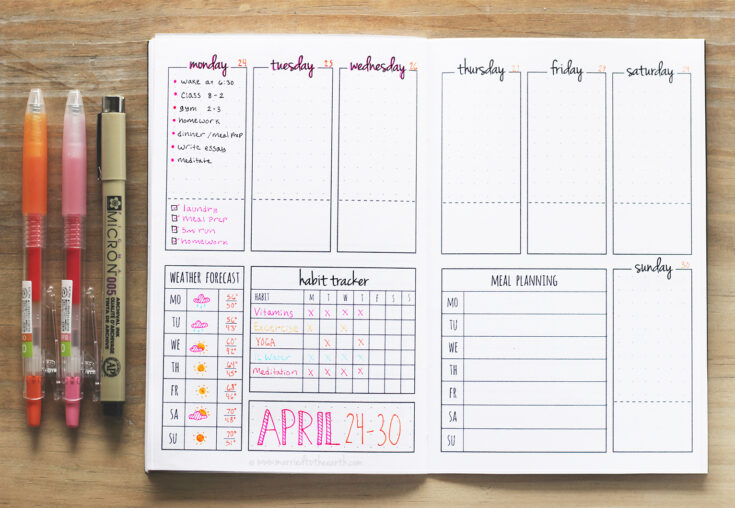 monday 24
• wake at 6:30
• Class 8-2
• gym 2-3
• homework
• dinner/meal prep
• write essay
• meditate
laundry
meal prep
5m run
homework
tuesday 25
wednesday 26
thursday 27
friday 28
saturday 29
sunday 30
WEATHER FORECAST
MO 56° 50°
TU 56° 43°
WE 60° 42°
TH 64° 45°
FR 68° 46°
SA 70° 48°
SU 70° 51°
habit tracker
HABIT M T W T F S S
Vitamins X X X X
Excercise X X
YOGA X X
1L Water X X X X
Meditation X X X X
APRIL 24-30
MEAL PLANNING
MO
TU
WE
TH
FR
SA
SU
MICRON 005
ARCHIVAL INK